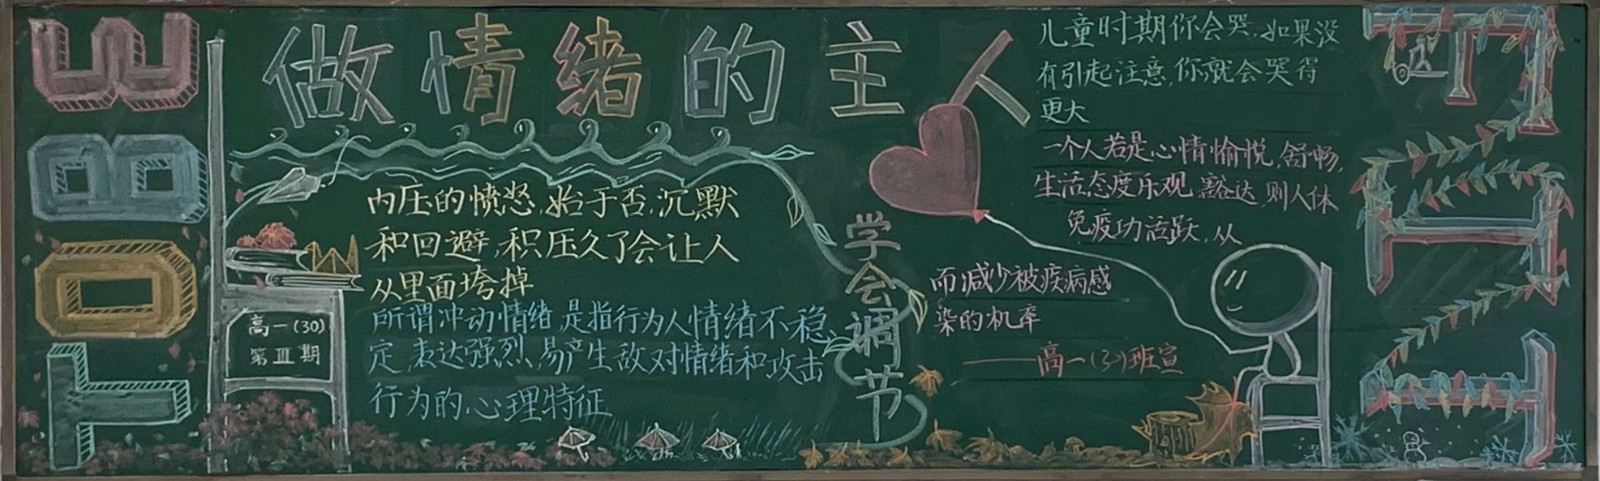 TOBE
做情绪的主人
内压的愤怒,始于否,沉默
和回避,积压久了会让人
从里面垮掉
所谓冲动情绪,是指行为人情绪不稳
定,表达强烈,易产生敌对情绪和攻击
行为的心理特征
高一(30)
第Ⅲ期
学会调节
儿童时期你会哭,如果没
有引起注意,你就会哭得
更大
一个人若是心情愉悦,舒畅,
生活态度乐观,豁达,则人体
免疫功活跃,从
而减少被疾病感
染的机率
——高一(3)班宣